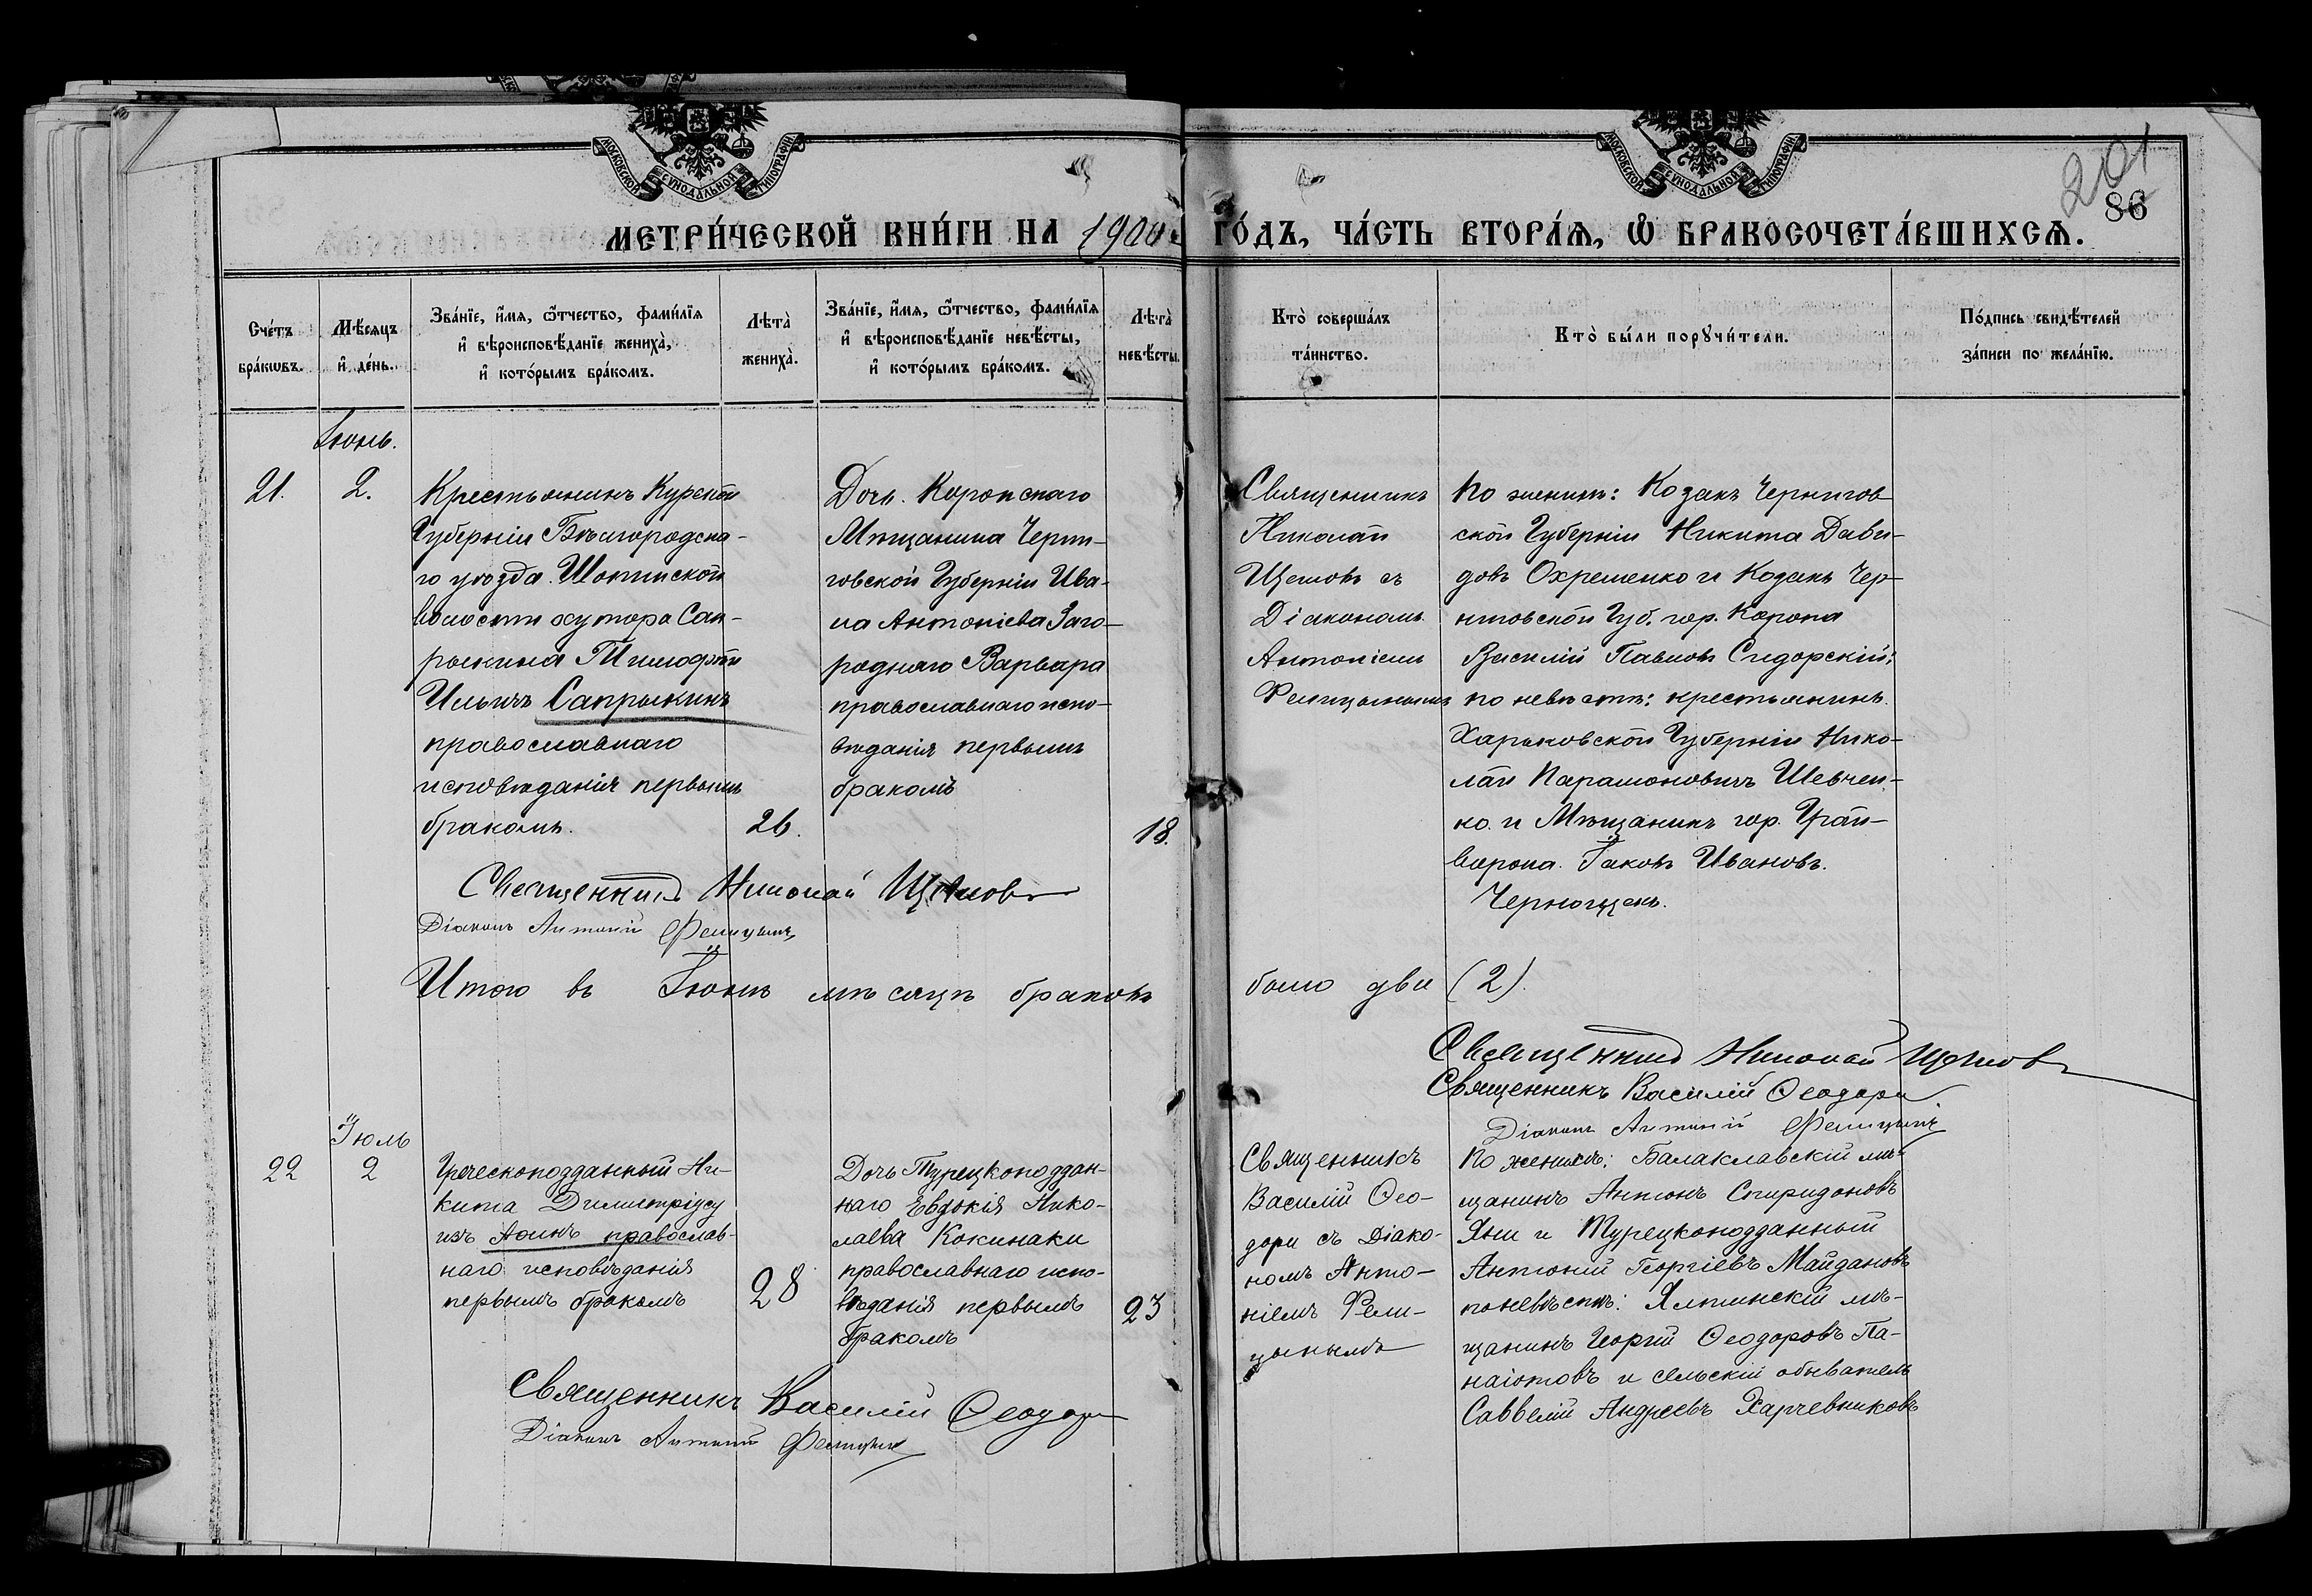 МОСКОВСКОЙ СУНОДАЛЬНОЙ ТИПОГРАФІИ
МОСКОВСКОЙ СУНОДАЛЬНОЙ ТИПОГРАФІИ
201
86
МЕТРИ́ЧЕСКОЙ КНИ́ГИ НА 1900 ГО́ДЪ, ЧА́СТЬ ВТОРА́Ѧ, Ѡ҆ БРАКОСОЧЕТА́ВШИХСѦ.
Сче́тъ
бра́кѡвъ.
Мѣ́сяцъ
и҆ де́нь.
Зва́нїе, и҆́мя, ѻ҆́тчество, фами́лїя
и҆ вѣроисповѣ́данїе жениха̀,
и҆ кото́рымъ бра́комъ.
Лѣта̀
жениха̀.
Зва́нїе, и҆́мя, ѻ҆́тчество, фами́лїя
и҆ вѣроисповѣ́данїе невѣ́сты,
и҆ кото́рымъ бра́комъ.
Лѣта̀
невѣ́сты.
Кто̀ соверша́лъ
та́инство.
Кто̀ бы́ли порꙋчи́тели.
По́дпись свидѣ́телей
за́писи по жела́нїю.
Іюнь.
21.
2.
Крестьянинъ Курской
Губерніи Бѣлгородска-
го уѣзда. Шопинской
волости хутора Сап-
рыкина Тимофей
Ильичъ Сапрыкинъ
православнаго
исповѣданія первымъ
бракомъ.
26.
Дочь. Коропскаго
Мѣщанина Черни-
говской Губерніи Ива-
на Антоніева Заго-
роднаго Варвара
православнаго испо-
вѣданія первымъ
бракомъ
18.
Священникъ
Николай
Щегловъ съ
Діакономъ
Антоніемъ
Фелицынымъ
По женихѣ: Козакъ Чернигов-
ской Губерніи Никита Дави-
довъ Охременко и Козакъ Чер-
ниговской Губ. гор. Коропа
Василій Павловъ Сидорскій;
по невѣстѣ: крестьянинъ
Харьковской Губерніи Нико-
лай Парамоновичъ Шевчен-
ко. и Мѣщанинъ гор. Грай-
ворона. Іаковъ Ивановъ.
Священникъ Николай Щегловъ
Діаконъ Антоній Фелицынъ
Итого въ Іюнѣ мѣсяцѣ браковъ было два (2).
Священникъ Николай Щегловъ
Священникъ Василій Ѳеодори
Діаконъ Антоній Фелицынъ
Іюль
22
2
Греческоподданный Ни-
кита Димитріусу
изъ Аѳинъ православ-
наго исповѣданія
первымъ бракомъ
28
Дочь Турецкоподдан-
наго Евдокія Нико-
лаева Кокинаки
православнаго испо-
вѣданія первымъ
бракомъ
23
Священникъ
Василій Ѳео-
дори съ Діако-
номъ Анто-
ніемъ Фели-
цынымъ
По женихѣ: Балаклавскій мѣ-
щанинъ Антонъ Спиридоновъ
Яни и Турецкоподданный
Антоній Георгіевъ Майдановъ
по невѣстѣ: Ялтинскій мѣ-
щанинъ Георгій Ѳеодоровъ Па-
наіотовъ и сельскій обыватель
Савелій Андреевъ Харчевниковъ
Священникъ Василій Ѳеодори
Діаконъ Антоній Фелицынъ